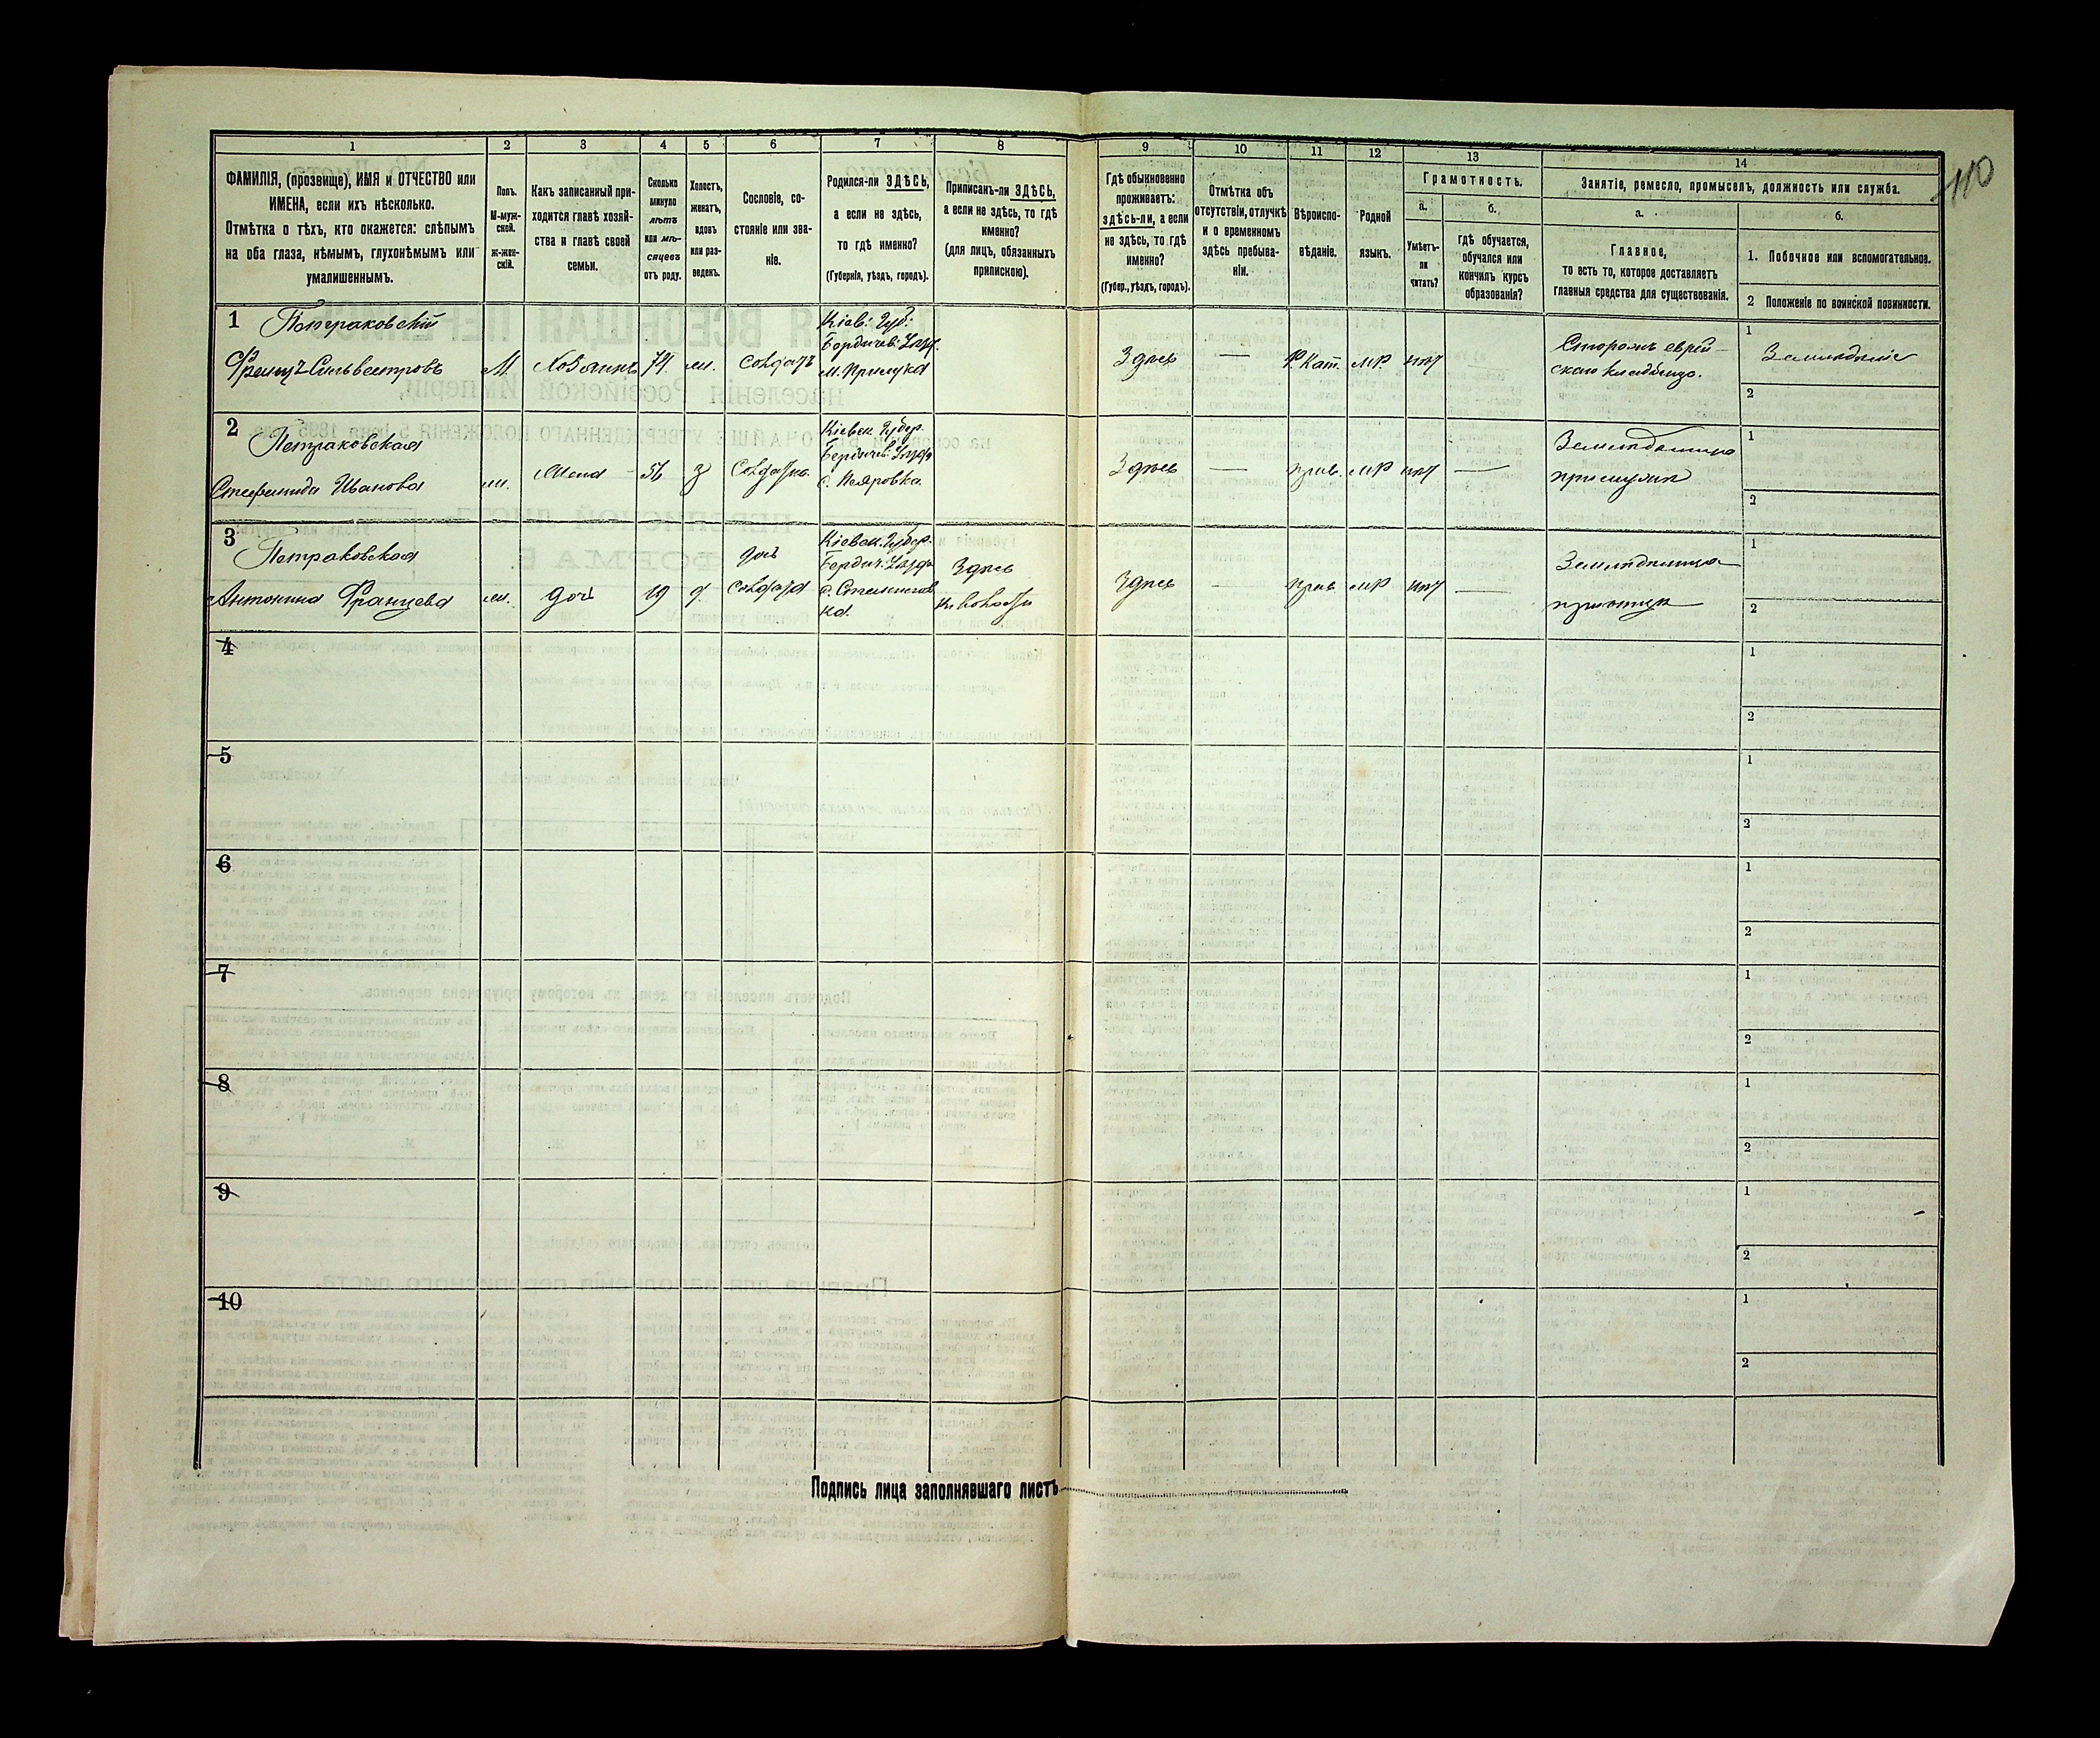 110
1 2 3 4 5 6 7 8 9 10 11 12 13 14
ФАМИЛІЯ, (прозвище), ИМЯ и ОТЧЕСТВО или
ИМЕНА, если ихъ нѣсколько.
Отмѣтка о тѣхъ, кто окажется: слѣпымъ
на оба глаза, нѣмымъ, глухонѣмымъ или
умалишеннымъ.
Полъ.
М-муж-
ской.
ж-жен-
скій.
Какъ записанный при-
ходится главѣ хозяй-
ства и главѣ своей
семьи.
Сколько
минуло
лѣтъ
или мѣ-
сяцевъ
отъ роду.
Холостъ,
женатъ,
вдовъ
или раз-
веденъ.
Сословіе, со-
стояніе или зва-
ніе.
Родился-ли ЗДѢСЬ,
а если не здѣсь,
то гдѣ именно?
(Губернія, уѣздъ, городъ).
Приписанъ-ли ЗДѢСЬ,
а если не здѣсь, то гдѣ
именно?
(для лицъ, обязанныхъ
припискою).
Гдѣ обыкновенно
проживаетъ:
здѣсь-ли, а если
не здѣсь, то гдѣ
именно?
(Губер., уѣздъ, городъ).
Отмѣтка объ
отсутствіи, отлучкѣ
и о временномъ
здѣсь пребыва-
ніи.
Вѣроиспо-
вѣданіе.
Родной
языкъ.
Грамотность.
а.
Умѣетъ-
ли
читать?
б.
гдѣ обучается,
обучался или
кончилъ курсъ
образованія?
Занятіе, ремесло, промыселъ, должность или служба.
а.
Главное,
то есть то, которое доставляетъ
главныя средства для существованія.
б.
1. Побочное или вспомогательное.
2 Положеніе по воинской повинности.
1 Петраковскій
Францъ Сильвестровъ М. Хозяинъ 74 ж. солдатъ
Кіев. Губ.
Бердичев. Уѣзд.
м. Прилука
Здѣсь — Р. Кат. МР. нѣт —
Сторожъ еврей-
скаго кладбища.
1 Земледѣліе
2
2 Петраковская
Стефанида Иванова ж. Жена 56 з Солдатка
Кіевск. Губер.
Бердичев. Уѣзд.
Здѣсь — прав. МР нѣт —
Земледѣлица
при мужѣ
1
2
3 Петраковская
Антонина Францева ж. дочь 19 д. дочь
солдата
Кіевск. Губер.
Бердич. Уѣзд.
Здѣсь
Здѣсь — прав МР нѣт —
Земледѣлица
при отцѣ
1
2
4
1
2
5
1
2
6
1
2
7
1
2
8
1
2
9
1
2
10
1
2
Подпись лица заполнявшаго листъ